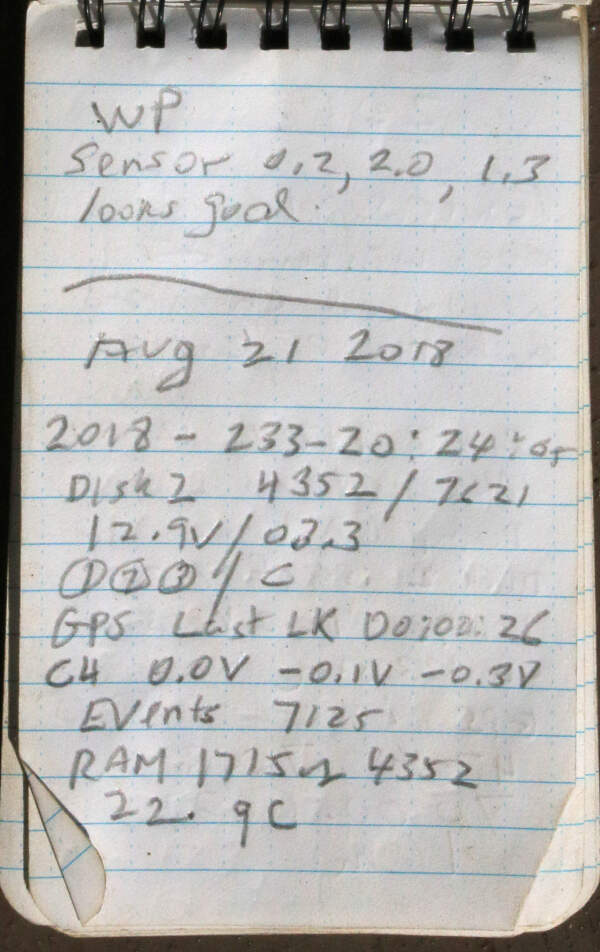 WP
Sensor 0.2, 2.0, 1.3
looks good.
Aug 21 2018
2018 - 233-20:24:05
Disk 2 4352 / 7621
12.9V / 03.3
① ② ③ / C
GPS Last LK 00:00:26
CH 0.0V -0.1V -0.3V
Events 7125
RAM 1715 4352
22.9C